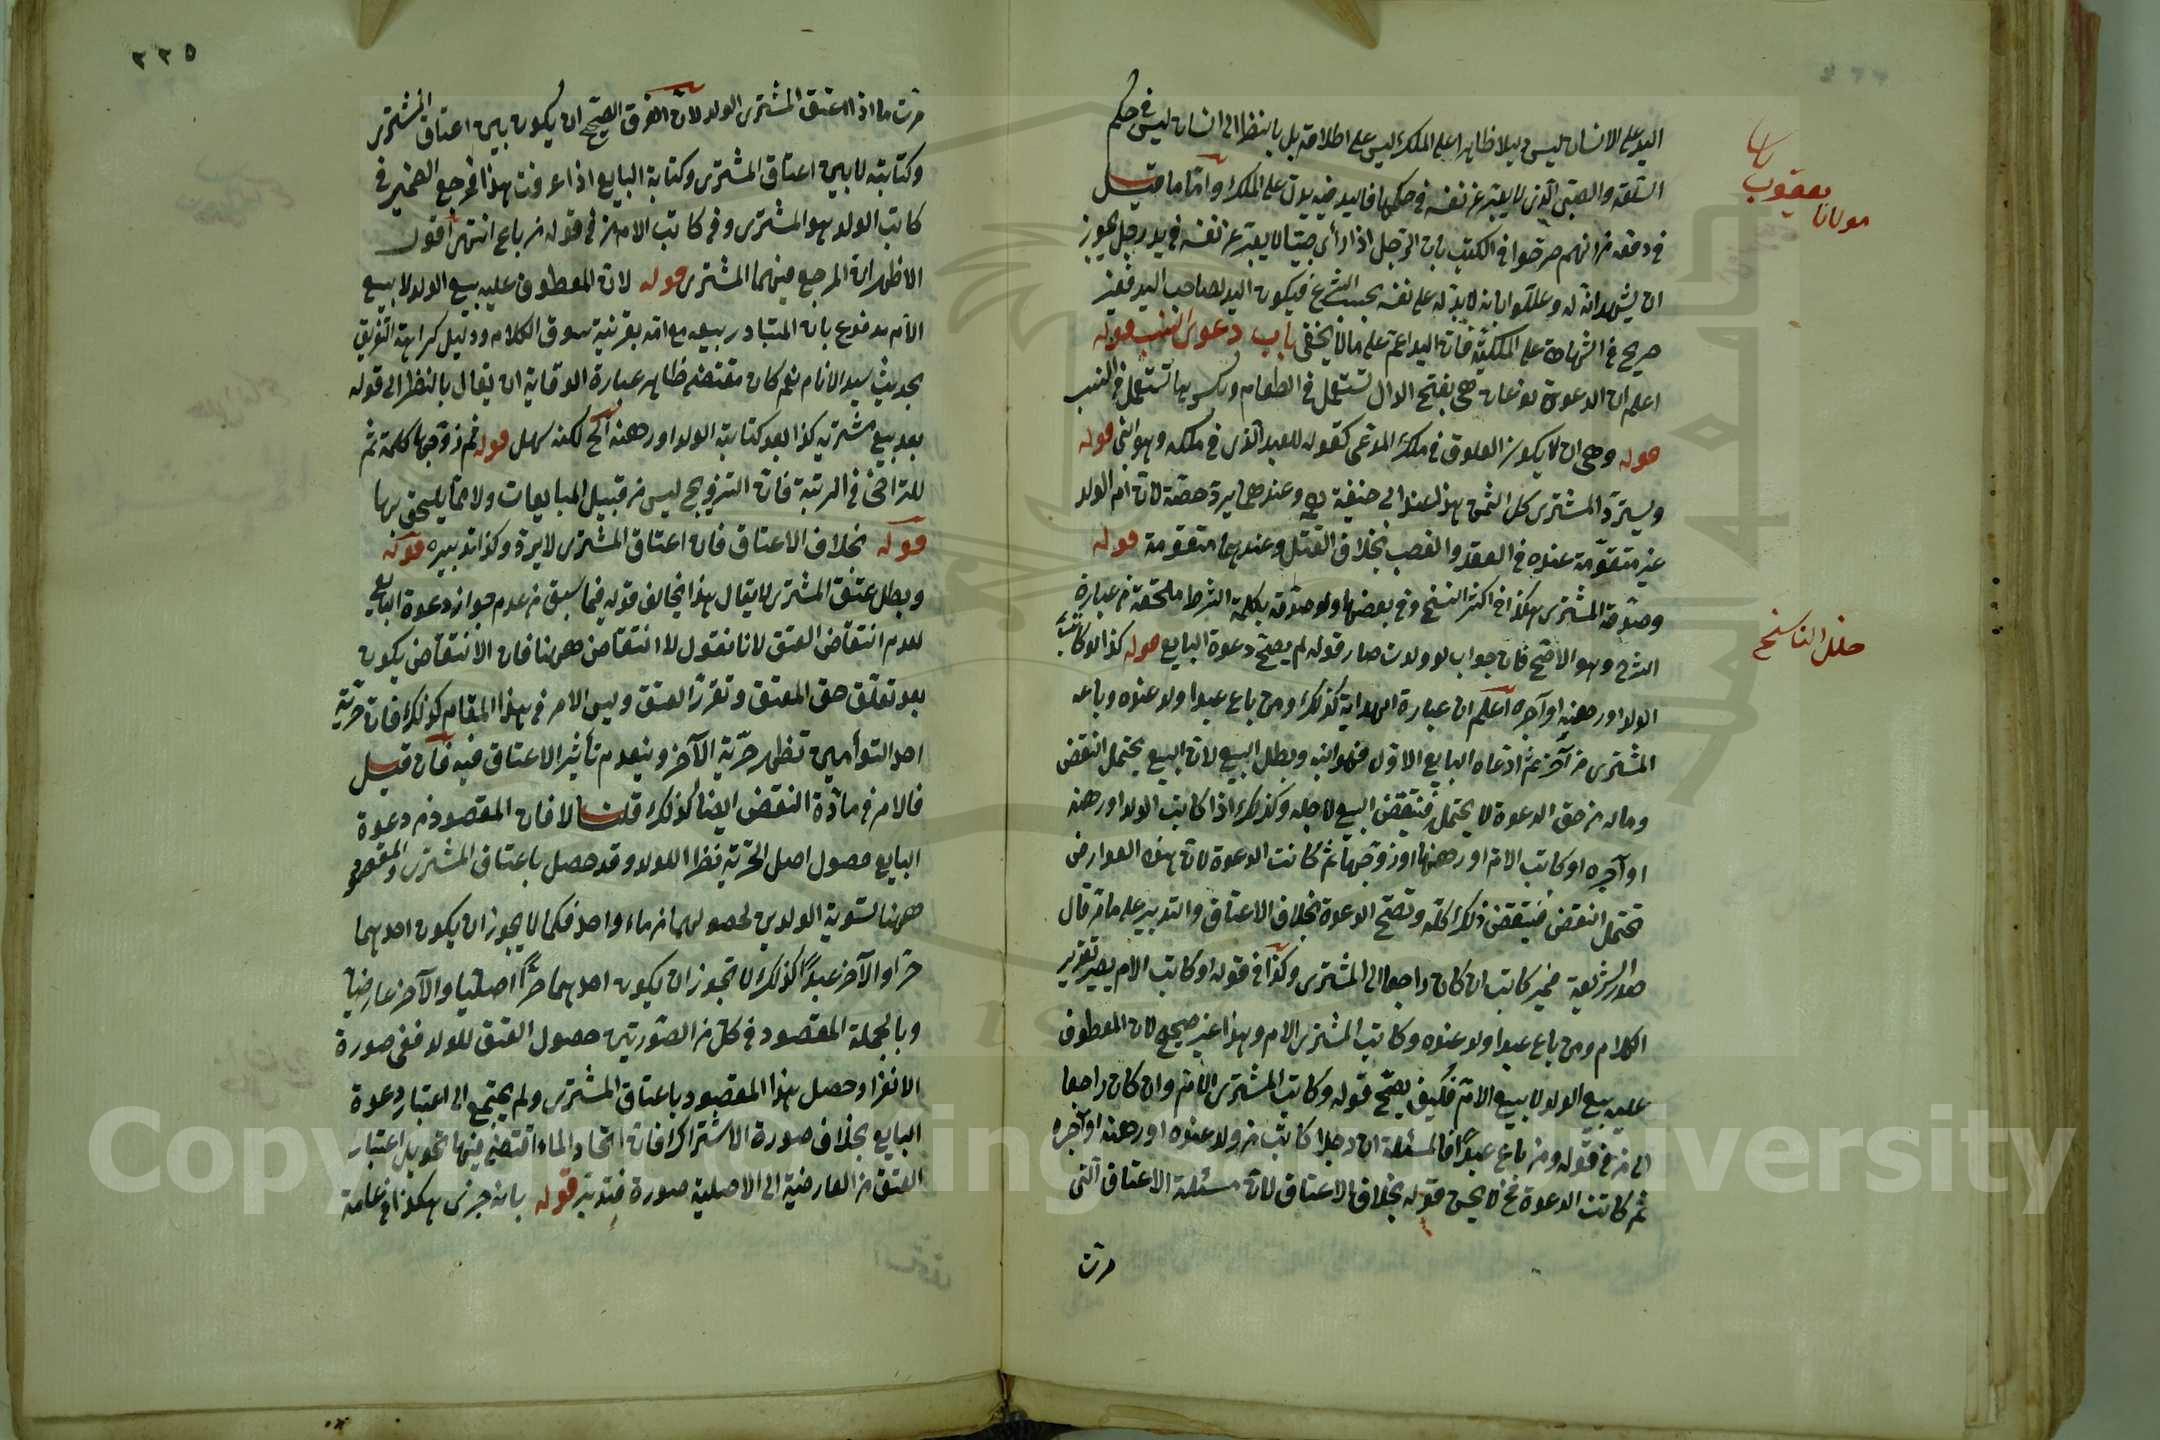 اليد على الانسان ليس دليلا ظاهرا على الملك ليس على اطلاقه بل بالنظر الى انسان ليس في حكم
السلعة والصبي الذي لا يعبر عن نفسه في حكمها فاليد فيه يدل على الملك واما ما قيل
في دفعه من انهم صرحوا في الكتب بان الرجل اذا رأى صبيا لا يعبر عن نفسه في يد رجل يجوز
ان يشهد انه له وعللوا بانه لا يد له على نفسه بحسب الشرع فيكون اليد لصاحب اليد فغير
صريح في الشهادة على الملكية فان اليد اعم على ما لا يخفى باب دعوى النسب قوله
اعلم ان الدعوة نوعان هي بفتح الدال تستعمل في الطعام وبكسرها تستعمل في النسب
قوله وهي ان لا يكون العلوق في ملك المدعي كقوله للعبد الذي في ملكه وهو ابني قوله
ويسترد المشتري كل الثمن هذا عند ابي حنيفة وعندهما يرد حصته لان ام الولد
غير متقومة عنده في العقد والغصب بخلاف القتل وعندهما متقومة قوله
وصدقه المشتري هكذا في اكثر النسخ وفي بعضها ولو صدقه بكلمة الشرط ملحقة من عبارة
الشرح وهو الاصح فان جواب لو ولدت صار قوله لم يصح دعوة البايع قوله كذا لو كاتب
الولد او رهنه او آجره اعلم ان عبارة الهداية كذلك ومن باع عبدا ولد عنده وباعه
المشتري من آخر ثم ادعاه البايع الاول فهو ابنه وبطل البيع لان البيع يحتمل النقض
وماله من حق الدعوة لا يحتمل فينتقض البيع لاجله وكذلك اذا كاتب الولد او رهنه
او آجره او كاتب الام او رهنها او زوجها ثم كانت الدعوة لان هذه العوارض
تحتمل النقض فينتقض ذلك كله وتصح الدعوة بخلاف الاعتاق والتدبير على ما مر قال
صدر الشريعة ضمير كاتب ان كان راجعا الى المشتري وكذا في قوله او كاتب الام يصير تقرير
الكلام ومن باع عبدا ولد عنده وكاتب المشتري الام وهذا غير صحيح لان المعطوف
عليه بيع الولد لا بيع الام فكيف يصح قوله وكاتب المشتري الام وان كان راجعا
الى من في قوله ومن باع عبدا فالمسئلة ان رجلا كاتب من ولد عنده او رهنه او آجره
ثم كانت الدعوة فح لا يحسن قوله بخلاف الاعتاق لان مسئلة الاعتاق التي
مرت
مولانا يعقوب پاشا
خلل الناسخ
٢٢٥
مرت ما اذا اعتق المشتري الولد لان الفرق الصحيح ان يكون بين اعتاق المشتري
وكتابته لا بين اعتاق المشتري وكتابة البايع اذا عرفت هذا فمرجع الضمير في
كاتب الولد هو المشتري وفي كاتب الام من في قوله من باع انتهى اقول
الاظهر ان المرجع فيهما المشتري قوله لان المعطوف عليه بيع الولد لا بيع
الام مدفوع بان المتبادر بيعه مع امه بقرينة سوق الكلام ودليل كراهة التفريق
بحديث سيد الانام نعم كان مقتضى ظاهر عبارة الوقاية ان يقال بالنظر الى قوله
بعد بيع مشتريه كذا بعد كتابة الولد او رهنه الخ لكنه سهل قوله ثم زوجها كلمة ثم
للتراخي في الرتبة فان التزويج ليس من قبيل المبايعات ولا مما يلحق بها
قوله بخلاف الاعتاق فان اعتاق المشتري لا يرد وكذا تدبيره قوله
وبطل عتق المشتري لا يقال هذا يخالف قوله فيما سبق من عدم جواز دعوة البايع
لعدم انتقاض العتق لانا نقول لا انتقاض ههنا فان الانتقاض يكون
بعد تعلق حق المعتق وتقرر العتق وليس الامر في هذا المقام كذلك فان حرية
احد التوأمين تظهر حرية الآخر وينعدم تأثير الاعتاق فيه فان قيل
فالامر في مادة النقض ايضا كذلك قلنا لا فان المقصود من دعوة
البايع حصول اصل الحرية نظرا للولد وقد حصل باعتاق المشتري والمقصود
ههنا لتسوية الولدين لحصولهما من ماء واحد فكما لا يجوز ان يكون احدهما
حرا والآخر عبدا كذلك لا تجوز ان يكون احدهما حرا اصليا والآخر عارضيا
وبالجملة المقصود في كل من الصورتين حصول العتق للولد ففي صورة
الانفراد حصل هذا المقصود باعتاق المشتري ولم يحتج الى اعتبار دعوة
البايع بخلاف صورة الاشتراك فان اتحاد الماء اقتضى فيها تحويل اعتبار
العتق من العارضية الى الاصلية صورة فتدبر قوله بانه جزى هكذا في عامة
Copyright © King Saud University